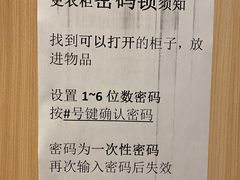 更衣柜密码锁须知
找到可以打开的柜子，放
进物品
设置 1~6 位数密码
按#号键确认密码
密码为一次性密码
再次输入密码后失效